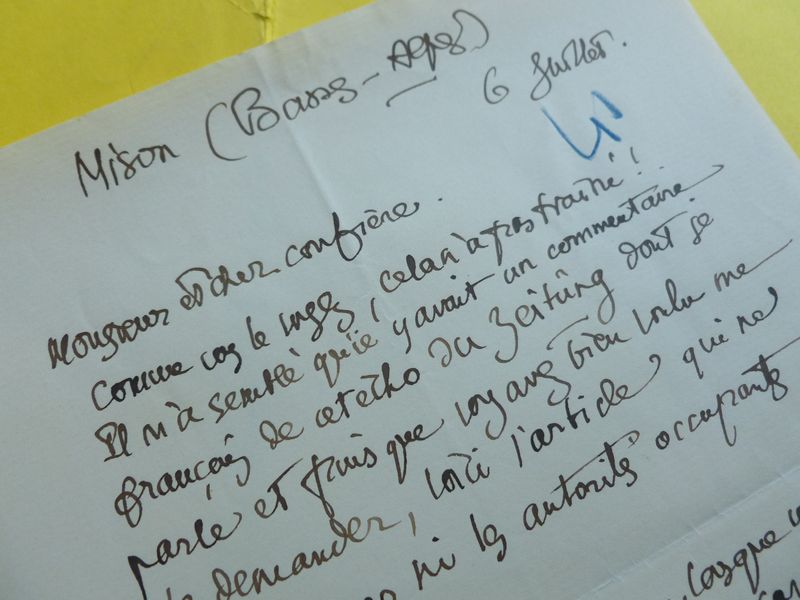 Mison (Basses-Alpes)
6 Juillet.
Monsieur et cher confrère.
comme vous le voyez, cela n'a pas traîné!
Il m'a semblé qu'il y avait un commentaire
français de cet écho du Zeitung dont je
parle et puisque vous avez bien voulu me
le demander, voici l'article qui ne
ni les autorités occupantes
lorsque